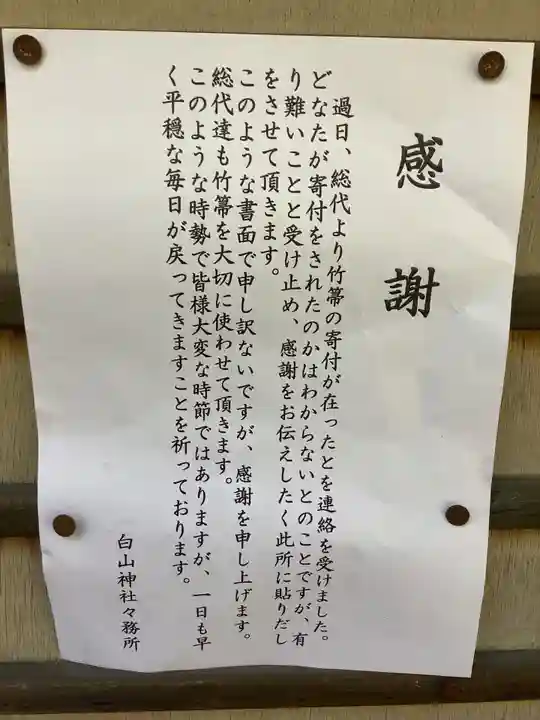 感謝
過日、総代より竹箒の寄付が在ったとを連絡を受けました。
どなたが寄付をされたのかはわからないとのことですが、有
り難いことと受け止め、感謝をお伝えしたく此所に貼りだし
をさせて頂きます。
このような書面で申し訳ないですが、感謝を申し上げます。
総代達も竹箒を大切に使わせて頂きます。
このような時勢で皆様大変な時節ではありますが、一日も早
く平穏な毎日が戻ってきますことを祈っております。
白山神社々務所